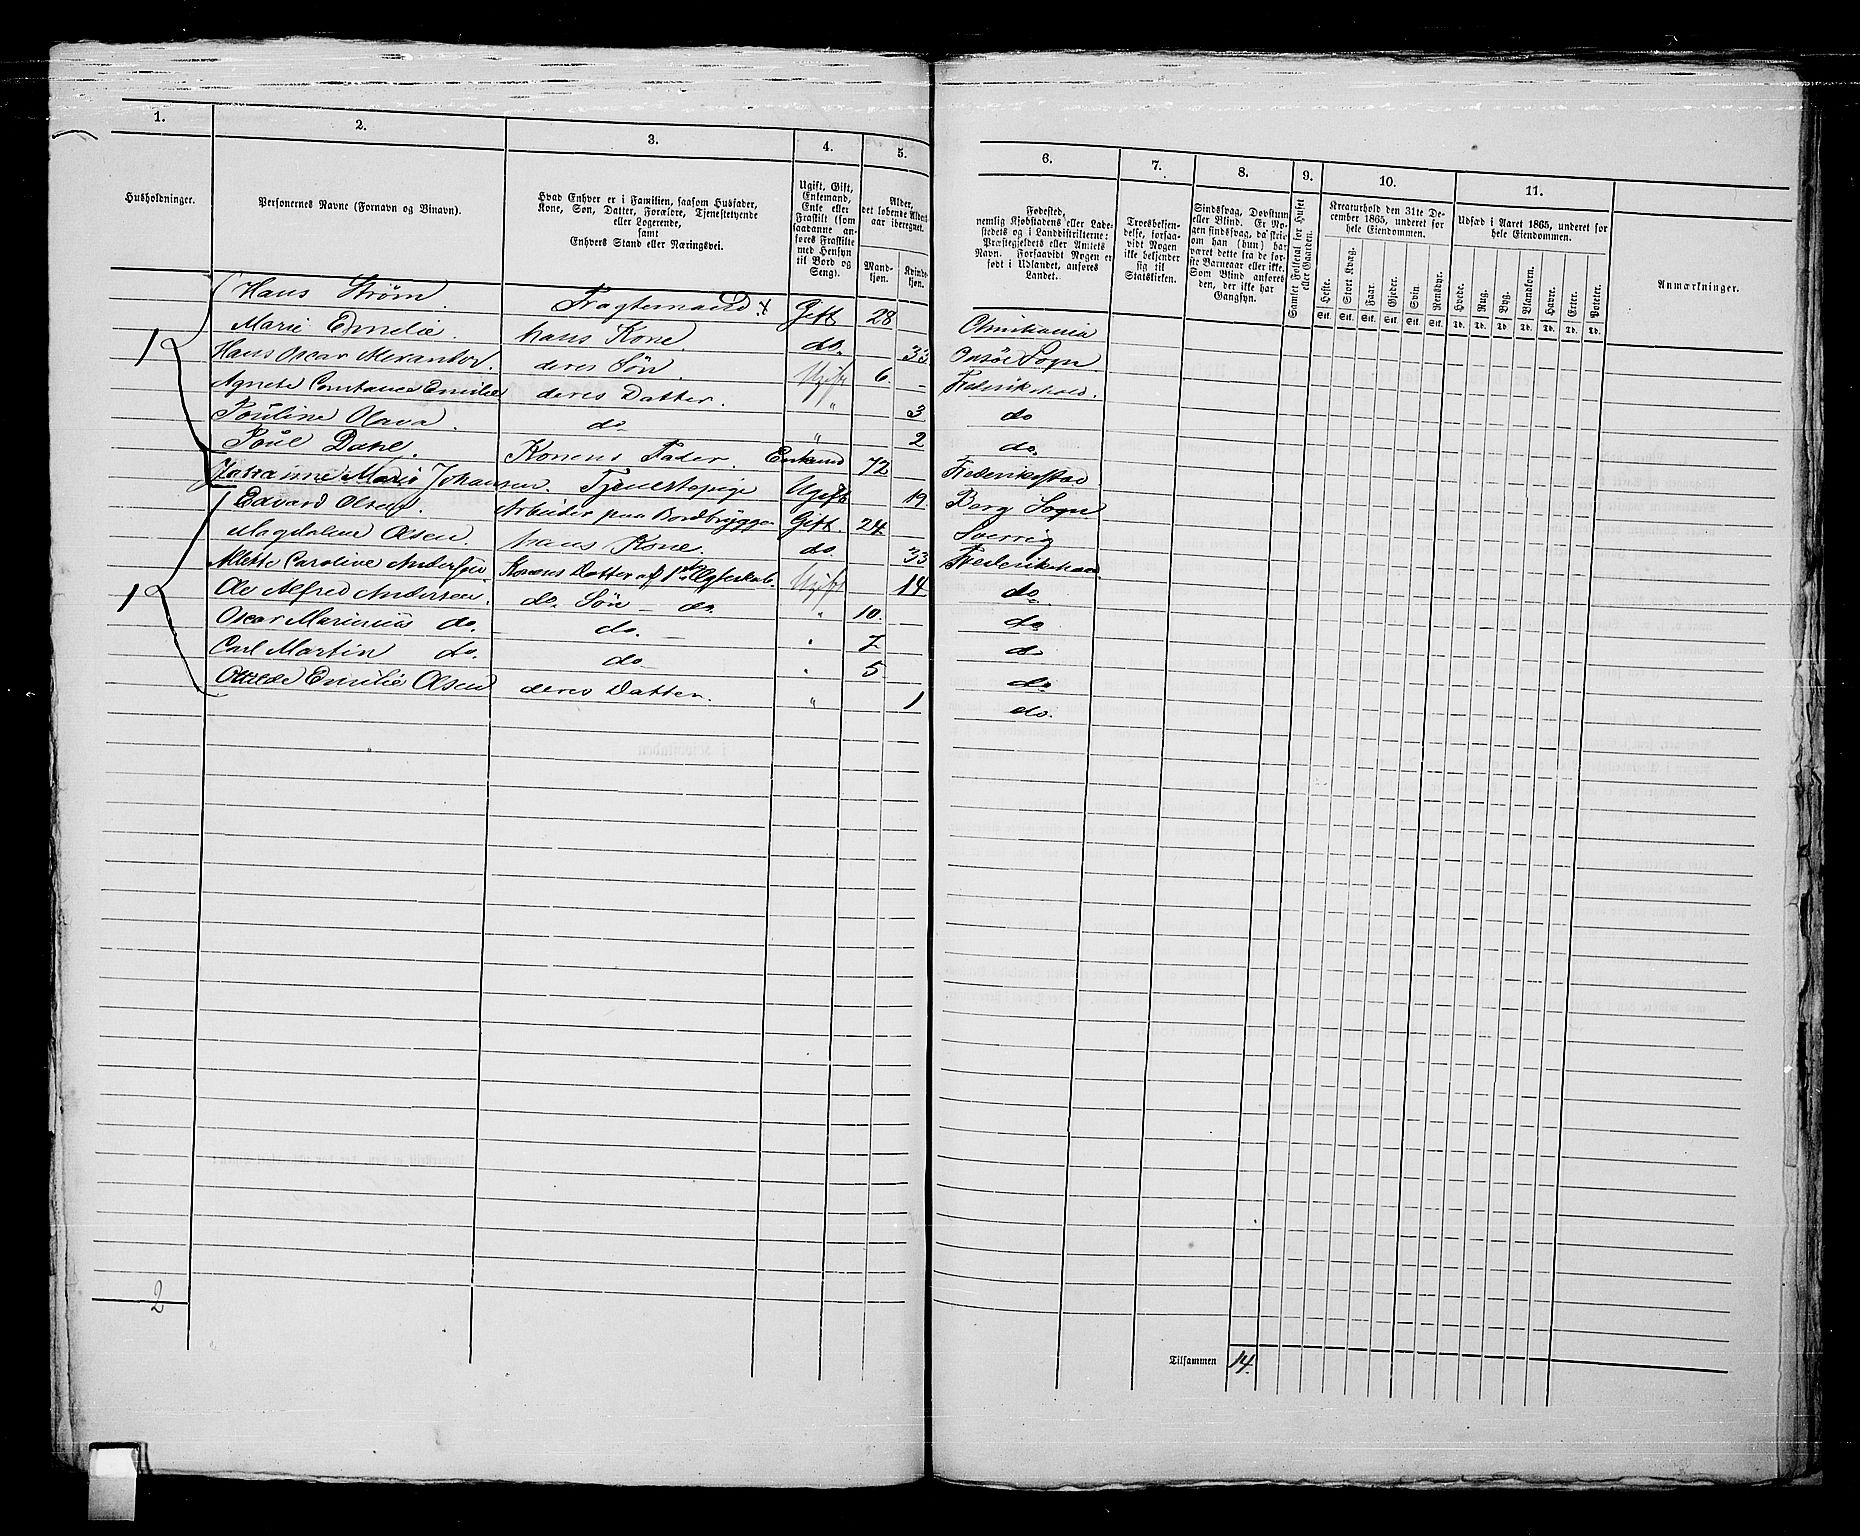 1. 2. 3. 4. 5. 6. 7. 8. 9. 10. 11.
Husholdninger.
Personernes Navne (Fornavn og Binavn).
Hvad Enhver er i Familien, saasom Husfader,
Kone, Søn, Datter, Forældre, Tjenestetyende
eller Logerende,
samt
Enhvers Stand eller Næringsvei.
Ugift, Gift,
Enkemand,
Enke eller
Fraskilt (som
saadanne an-
føres Fraskilte
med Hensyn
til Bord og
Seng).
Alder,
det løbende Alders-
aar iberegnet.
Mand-
kjøn.
Kvinde-
kjøn.
Fødested,
nemlig Kjøbstadens eller Lade-
stedets og i Landdistrikterne:
Præstegjeldets eller Amtets
Navn. Forsaavidt Nogen er
født i Udlandet, anføres
Landet.
Troesbekjen-
delse, forsaa-
vidt Nogen
ikke bekjender
sig til
Statskirken.
Sindssvag, Døvstum
eller Blind. Er No-
gen sindssvag, da skri-
ves
om han (hun) har
været dette fra de før-
ste Barneaar eller ikke.
Som Blind anføres
den, der ikke har
Gangsyn.
Samlet Folketal for Huset
eller Gaarden.
Kreaturhold den 31te De-
cember 1865, underet for
hele Eiendommen.
Heste. Stort Kvæg. Faar. Gjeder. Svin. Rensdyr.
Stk. Stk. Stk. Stk. Stk. Stk.
Udsæd i Aaret 1865, underet for
hele Eiendommen.
Hvede. Rug. Byg. Blandkorn. Havre. Erter. Poteter.
Td. Td. Td. Td. Td. Td. Td.
Anmærkninger.
Hans Strøm. Fragtemand x Gift 28 Christiania
1 Marie Emelie hans Kone do. 33 Onsøe Sogn
Hans Oscar deres Søn. Ugift 6 Frederikshald.
Agnete Constance Emilie deres Datter. " 3 do
Pouline Olava. do " 2 do.
Poul Dahl. Konens Fader. Enkmd 72 Frederikstad
Johanne Marie Johansen. Tjenestepige Ugift 19. Berg Sogn
Edvard Olsen. Arbeider paa Bordbrygge Gift. 24 Sverrig
Magdalene Olsen. hans Kone. do. 33 Frederikshald
1 Alette Caroline Andersen. Konens Datter af 1ste Ægteskab. Ugift 14 do.
Ole Alfred Andersen. do. Søn — do. " 10. do.
Oscar Marinius do. — do. — " 7 do
Carl Martin do. do. " 5 do
Emilie Olsen deres Datter. " 1 do.
2
Tilsammen 14.